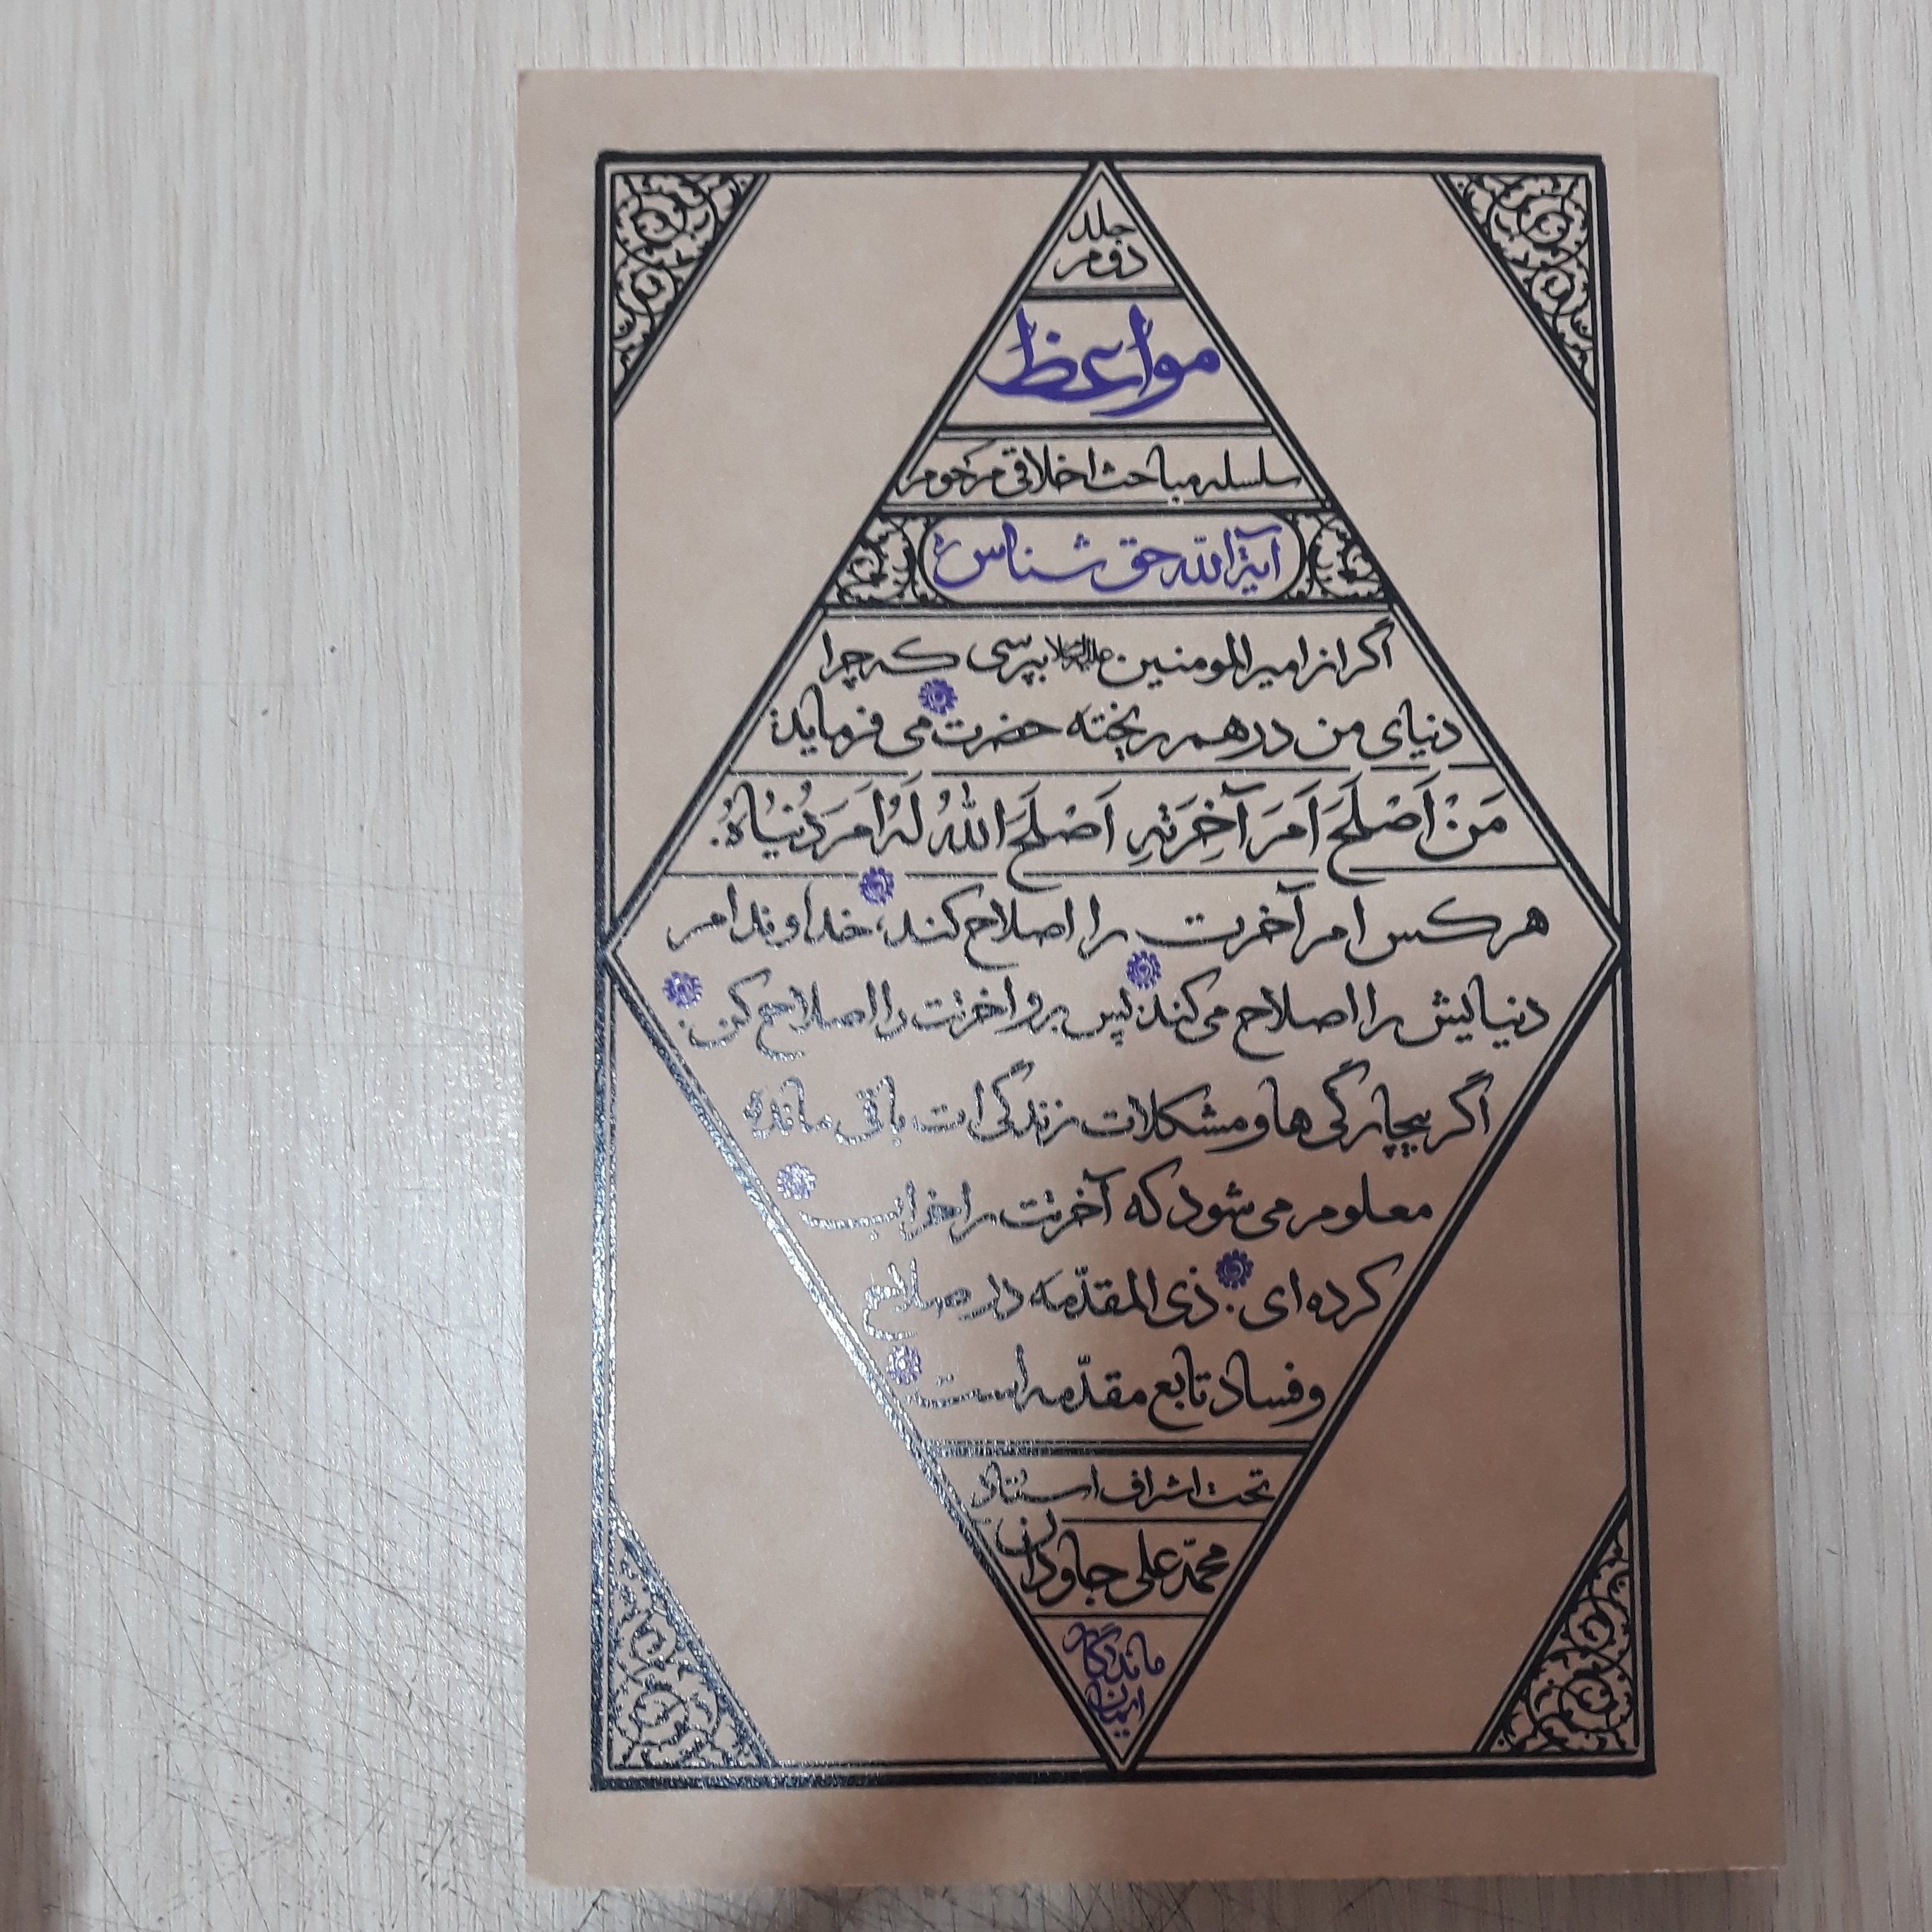 جلد
دوم
مواعظ
سلسله مباحث اخلاقی مرحوم
آیة الله حق شناس ره
اگر از امیرالمومنین علیه‌السلام بپرسی که چرا
دنیای من درهم ریخته حضرت می فرماید:
مَنْ اَصْلَحَ اَمَرَ آخِرَتِهِ اَصْلَحَ اللهُ لَهُ اَمَرَ دُنْیاهُ.
هرکس امر آخرت را اصلاح کند، خداوند امر
دنیایش را اصلاح می کند: پس برو آخرتت را اصلاح کن.
اگر بیچارگی ها و مشکلات زندگی ات باقی مانده
معلوم می شود که آخرتت را خراب
کرده ای. ذی المقدّمه در صلاح
و فساد تابع مقدّمه است
تحت اشراف استاد
محمّدعلی جاودان
ماندگار
ایمان